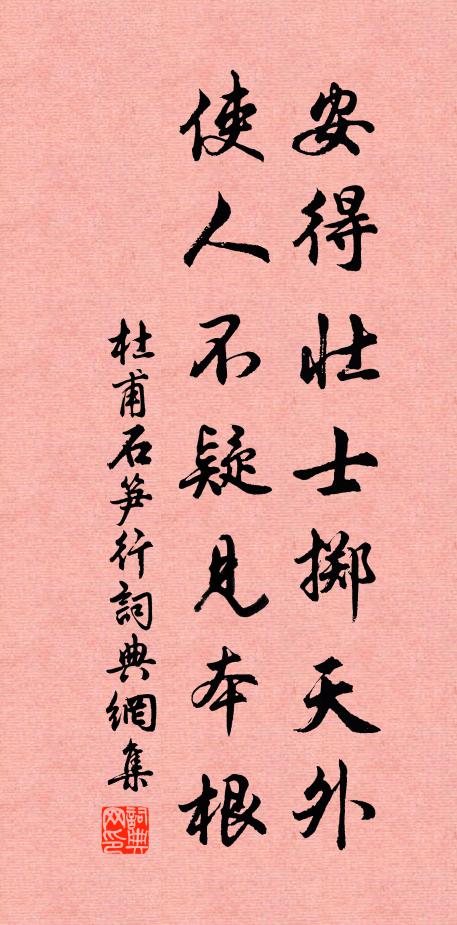 安得壮士掷天外
使人不疑見本根
杜甫石笋行詞典網集
詞典网印